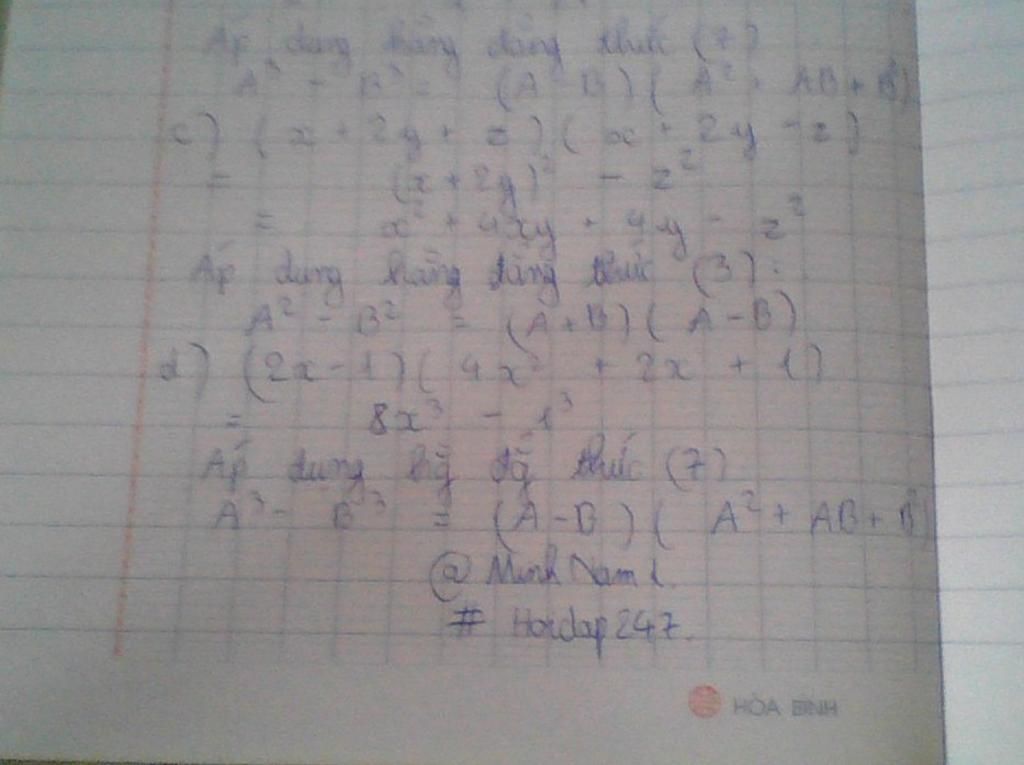 Áp dụng hằng đẳng thức (7)
A³ - B³ = (A - B) ( A² + AB + B²)
c) ( x + 2y + z ) ( x + 2y - z )
= (x + 2y)² - z²
= x² + 4xy + 4y - z²
Áp dụng hằng đẳng thức (3) :
A² - B² = (A + B) ( A - B)
d) (2x - 1) ( 4x² + 2x + 1)
= 8x³ - 1³
Áp dụng hg̃ đg̃ thức (7)
A³ - B³ = (A - B) ( A² + AB + B²)
@ Minh Nam 1.
# Hoidap247.
HÒA BÌNH